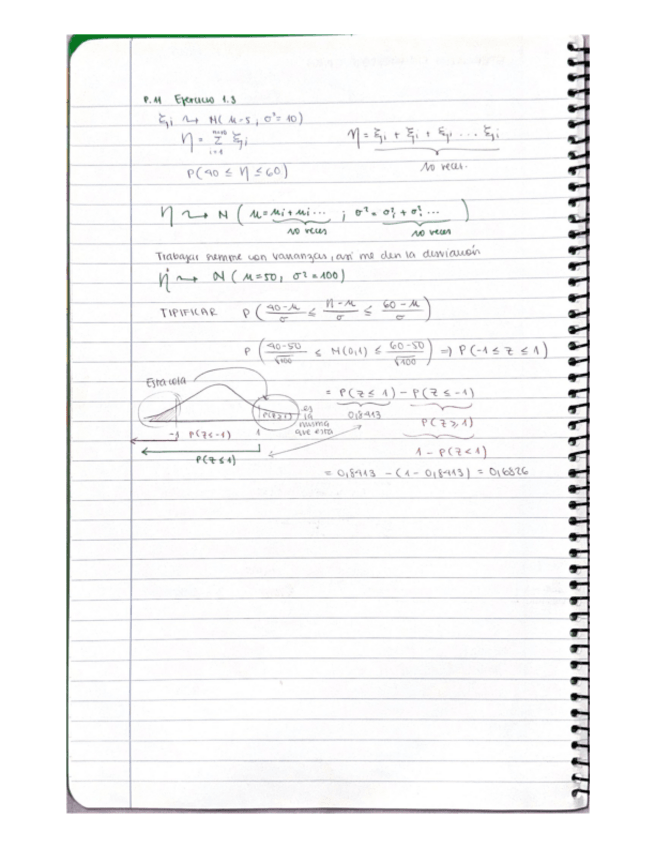 P.11 Ejercicio 1.3
ξi ⤳ N( μ=5, σ²=10)
η = Σ ξi    η = ξi + ξi + ξi ... ξi
i=1
P(40 ≤ η ≤ 60)    10 veces.
η ⤳ N ( μ = μi + μi ... ; σ² = σi² + σi² ... )
10 veces    10 veces
Trabajar siempre con varianzas, así me den la desviación
η ⤳ N ( μ=50, σ²=100)
TIPIFICAR P ( (40-μ)/σ ≤ (η-μ)/σ ≤ (60-μ)/σ )
P ( (40-50)/√100 ≤ N(0,1) ≤ (60-50)/√100 ) => P(-1 ≤ Z ≤ 1)
Esta cola
= P(Z ≤ 1) - P(Z ≤ -1)
P(Z≥1) es la misma que esta
0,8413    P(Z ≥ 1)
-1 P(Z<-1) 1
1 - P(Z < 1)
P(Z ≤ 1)
= 0,8413 - (1 - 0,8413) = 0,6826